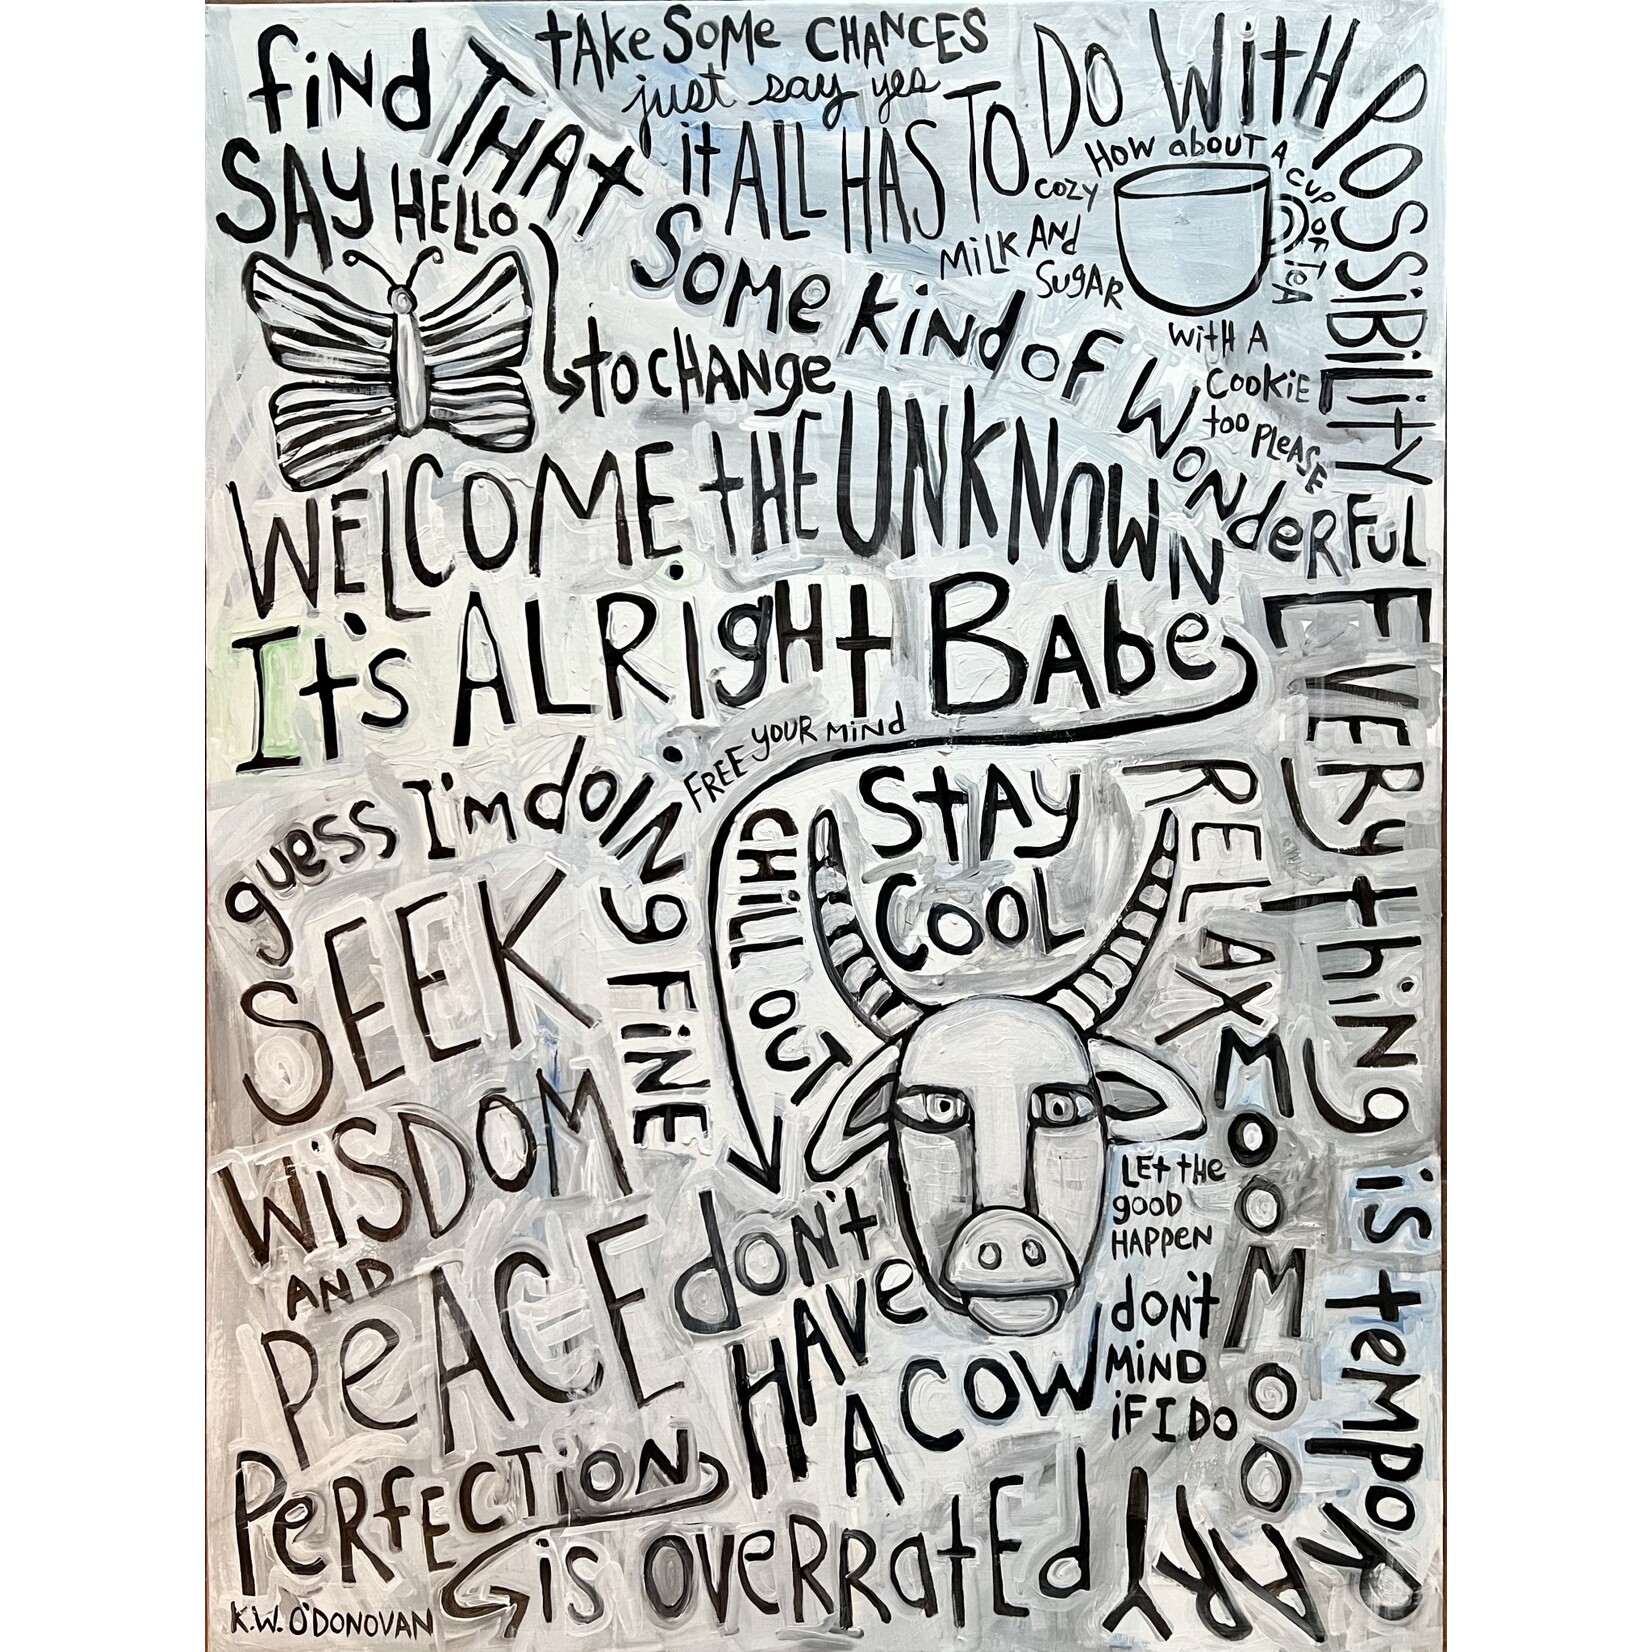 tAKe SoMe CHANCES
just say yes
find THAt SoMe KiNd oF WoNdeRFUL
it ALL HAS TO DO WitH POSSiBiLitY
SAY HELLO
to cHANge
HOW about A CUP OF teA
COZY
MiLK ANd
SUgAR
WitH A
COOKiE
too PLEASE
WELCOME tHE UNKNOWN
It's ALRigHt BAbe
FREE YOUR MiNd
guess I'm doiNg FiNE
StAY
COOL
CHiLL OUT
RELAX
EVERYthiNg iS teMPoRARY
SEEK
WiSDOM
AND
PeACE
MooMooMooo
LEt tHE
gOOD
HAPPEN
doN't
HAVe
A COW
doN't
MiND
iF I DO
PeRfECTiON
is OVeRRatEd
K.W. O'DONOVAN